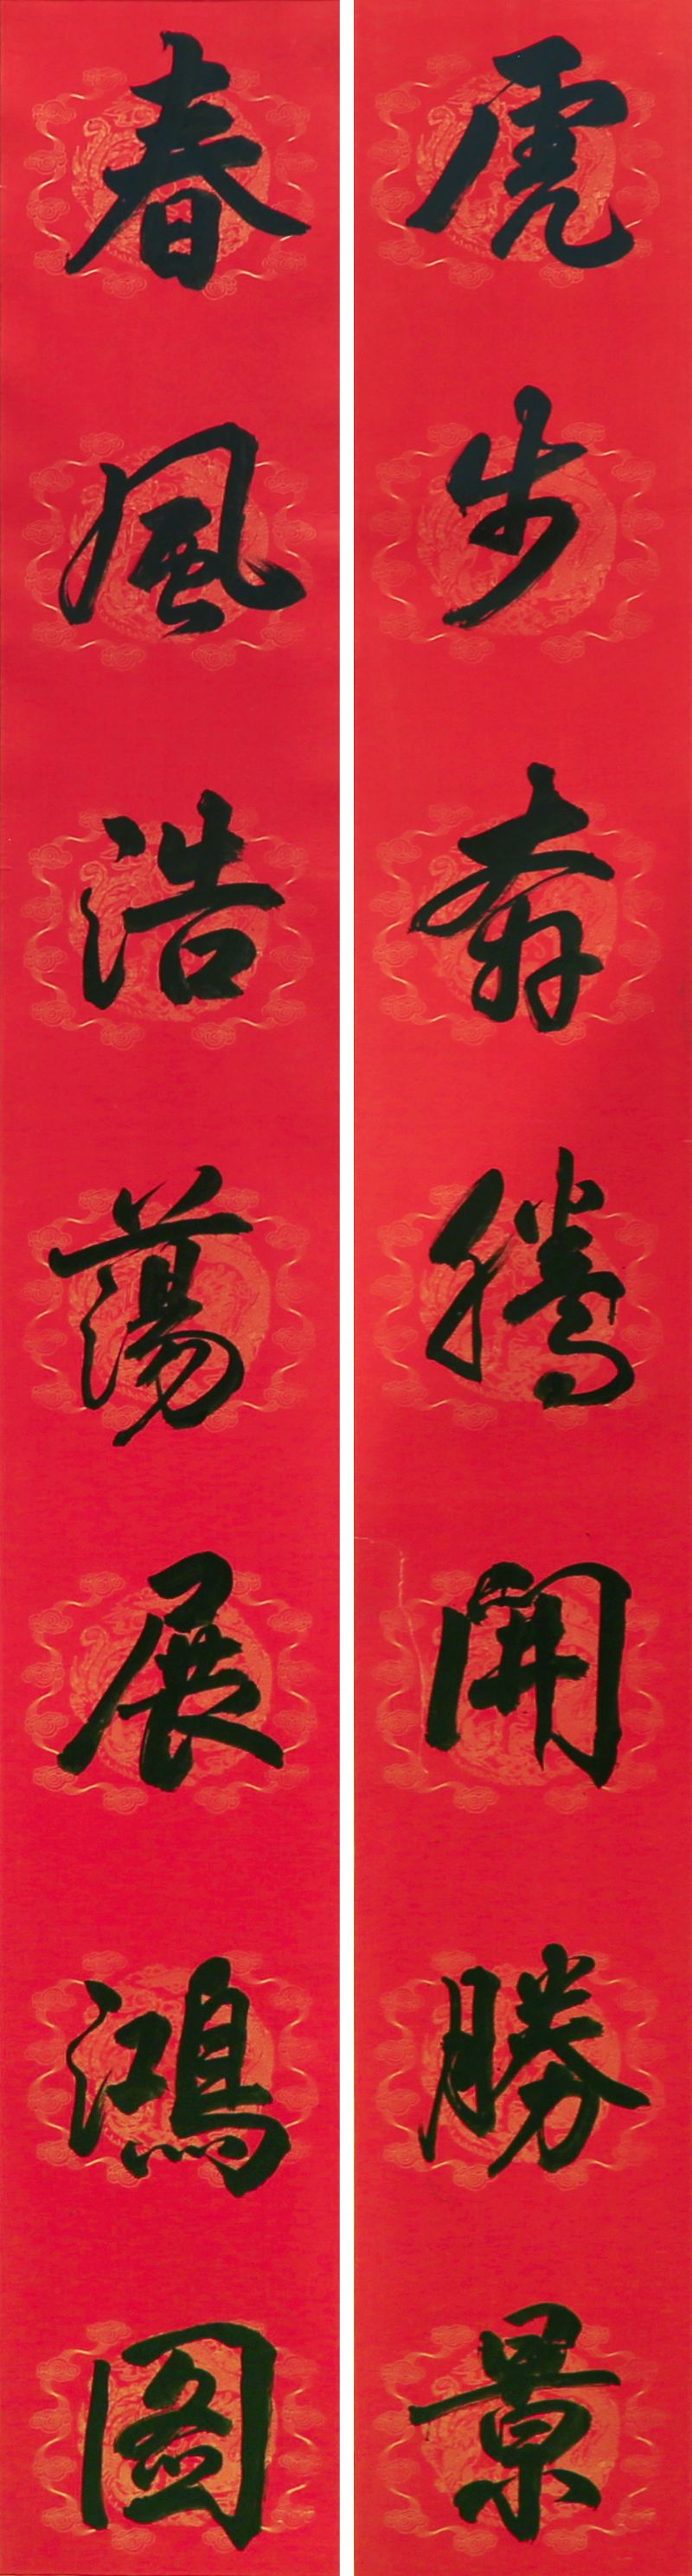 虎步奔騰開勝景
春風浩蕩展鴻圖